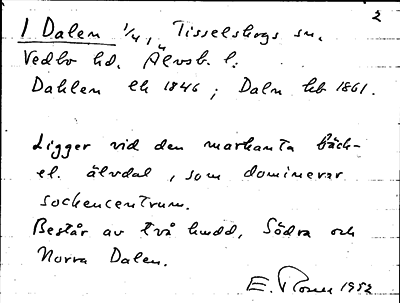 2
1 Dalen 1/4, Tisselskogs sn.
Vedbo hd. Älvsb. l:
Dahlen ek 1846 ; Daln kb 1861.
Ligger vid den markanta bäck-
el. älvdal, som dominerar
sockencentrum.
Består av två hmd, Södra och
Norra Dalen.
E. 1952